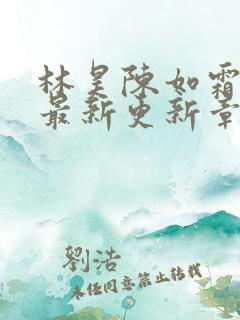 林昊陈如霜
最新更新章
劉浩
未经同意禁止转载